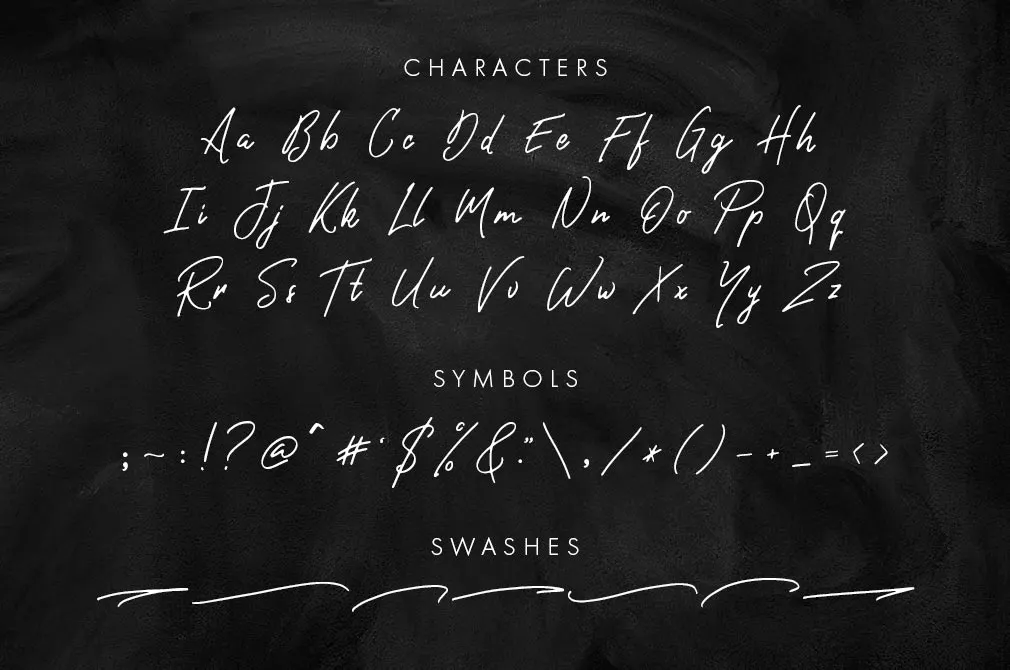 CHARACTERS
Aa Bb Cc Dd Ee Ff Gg Hh
Ii Jj Kk Ll Mm Nn Oo Pp Qq
Rr Ss Tt Uu Vv Ww Xx Yy Zz
SYMBOLS
; ~ : ! ? @ ^ # ‘ $ % & . ” \ , / * ( ) - + _ = < >
SWASHES